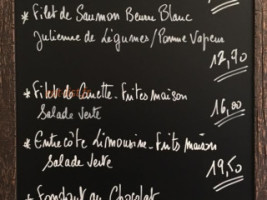 * Filet de Saumon Beurre Blanc
Julienne de Légumes/Pomme Vapeur
12,70
* Filet de Canette - Frites maison
Salade Verte
16,00
* Entrecôte Limousine - Frits maison
Salade Verte
19,50
* Fondant au Chocolat